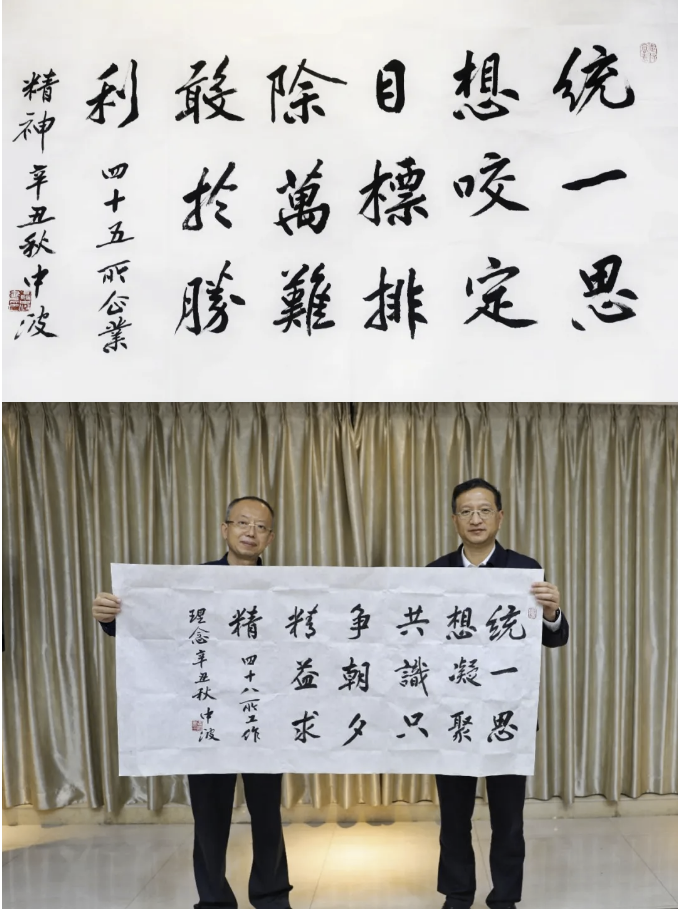 統一思
想咬定
目標排
除萬難
敢於勝
利 四十五所企業
精神 辛丑秋 中波
統一思
想凝聚
共識只
争朝夕
精益求
精 四十八所工作
理念 辛丑秋 中波